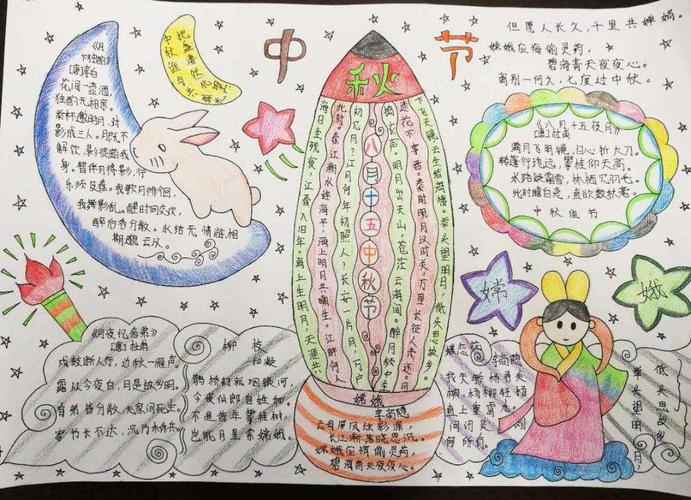 中
秋
节
但愿人长久，千里共婵娟。
嫦娥应悔偷灵药，
碧海青天夜夜心。
离别一何久，七度过中秋。
《月下独酌》
[唐]李白
花间一壶酒，
独酌无相亲。
举杯邀明月，对
影成三人。月既不
解饮，影徒随我
身。暂伴月将影，行
乐须及春。我歌月徘徊，
我舞影乱。醒时同交欢，
醉后各分散。永结无情游，相
期邈云汉。
中秋谁与
共孤光
把盏凄然北望
《八月十五夜月》
[唐]杜甫
满月飞明镜，归心折大刀。
转蓬行地远，攀桂仰天高。
水路疑霜雪，林栖见羽毛。
此时瞻白兔，直欲数秋毫。
中秋佳节
八月十五中秋节
海日生残夜，江春入旧年。海上生明月，天涯共
下飞天镜，云生结海楼。举头望明月，低头思故乡。
嫦
娥
《月夜忆舍弟》
[唐]杜甫
戍鼓断人行，边秋一雁声。
露从今夜白，月是故乡明。
有弟皆分散，无家问死生。
寄书长不达，况乃未休兵。
柳枝
和凝
鹊桥初就咽银河，
今夜仙郎自姓和。
不是昔年攀桂树，
岂能月里索嫦娥。
嫦娥
李商隐
云母屏风烛影深，
长江渐落晓星沉。
嫦娥应悔偷灵药，
碧海青天夜夜心。
举头望明月，
低头思故乡。